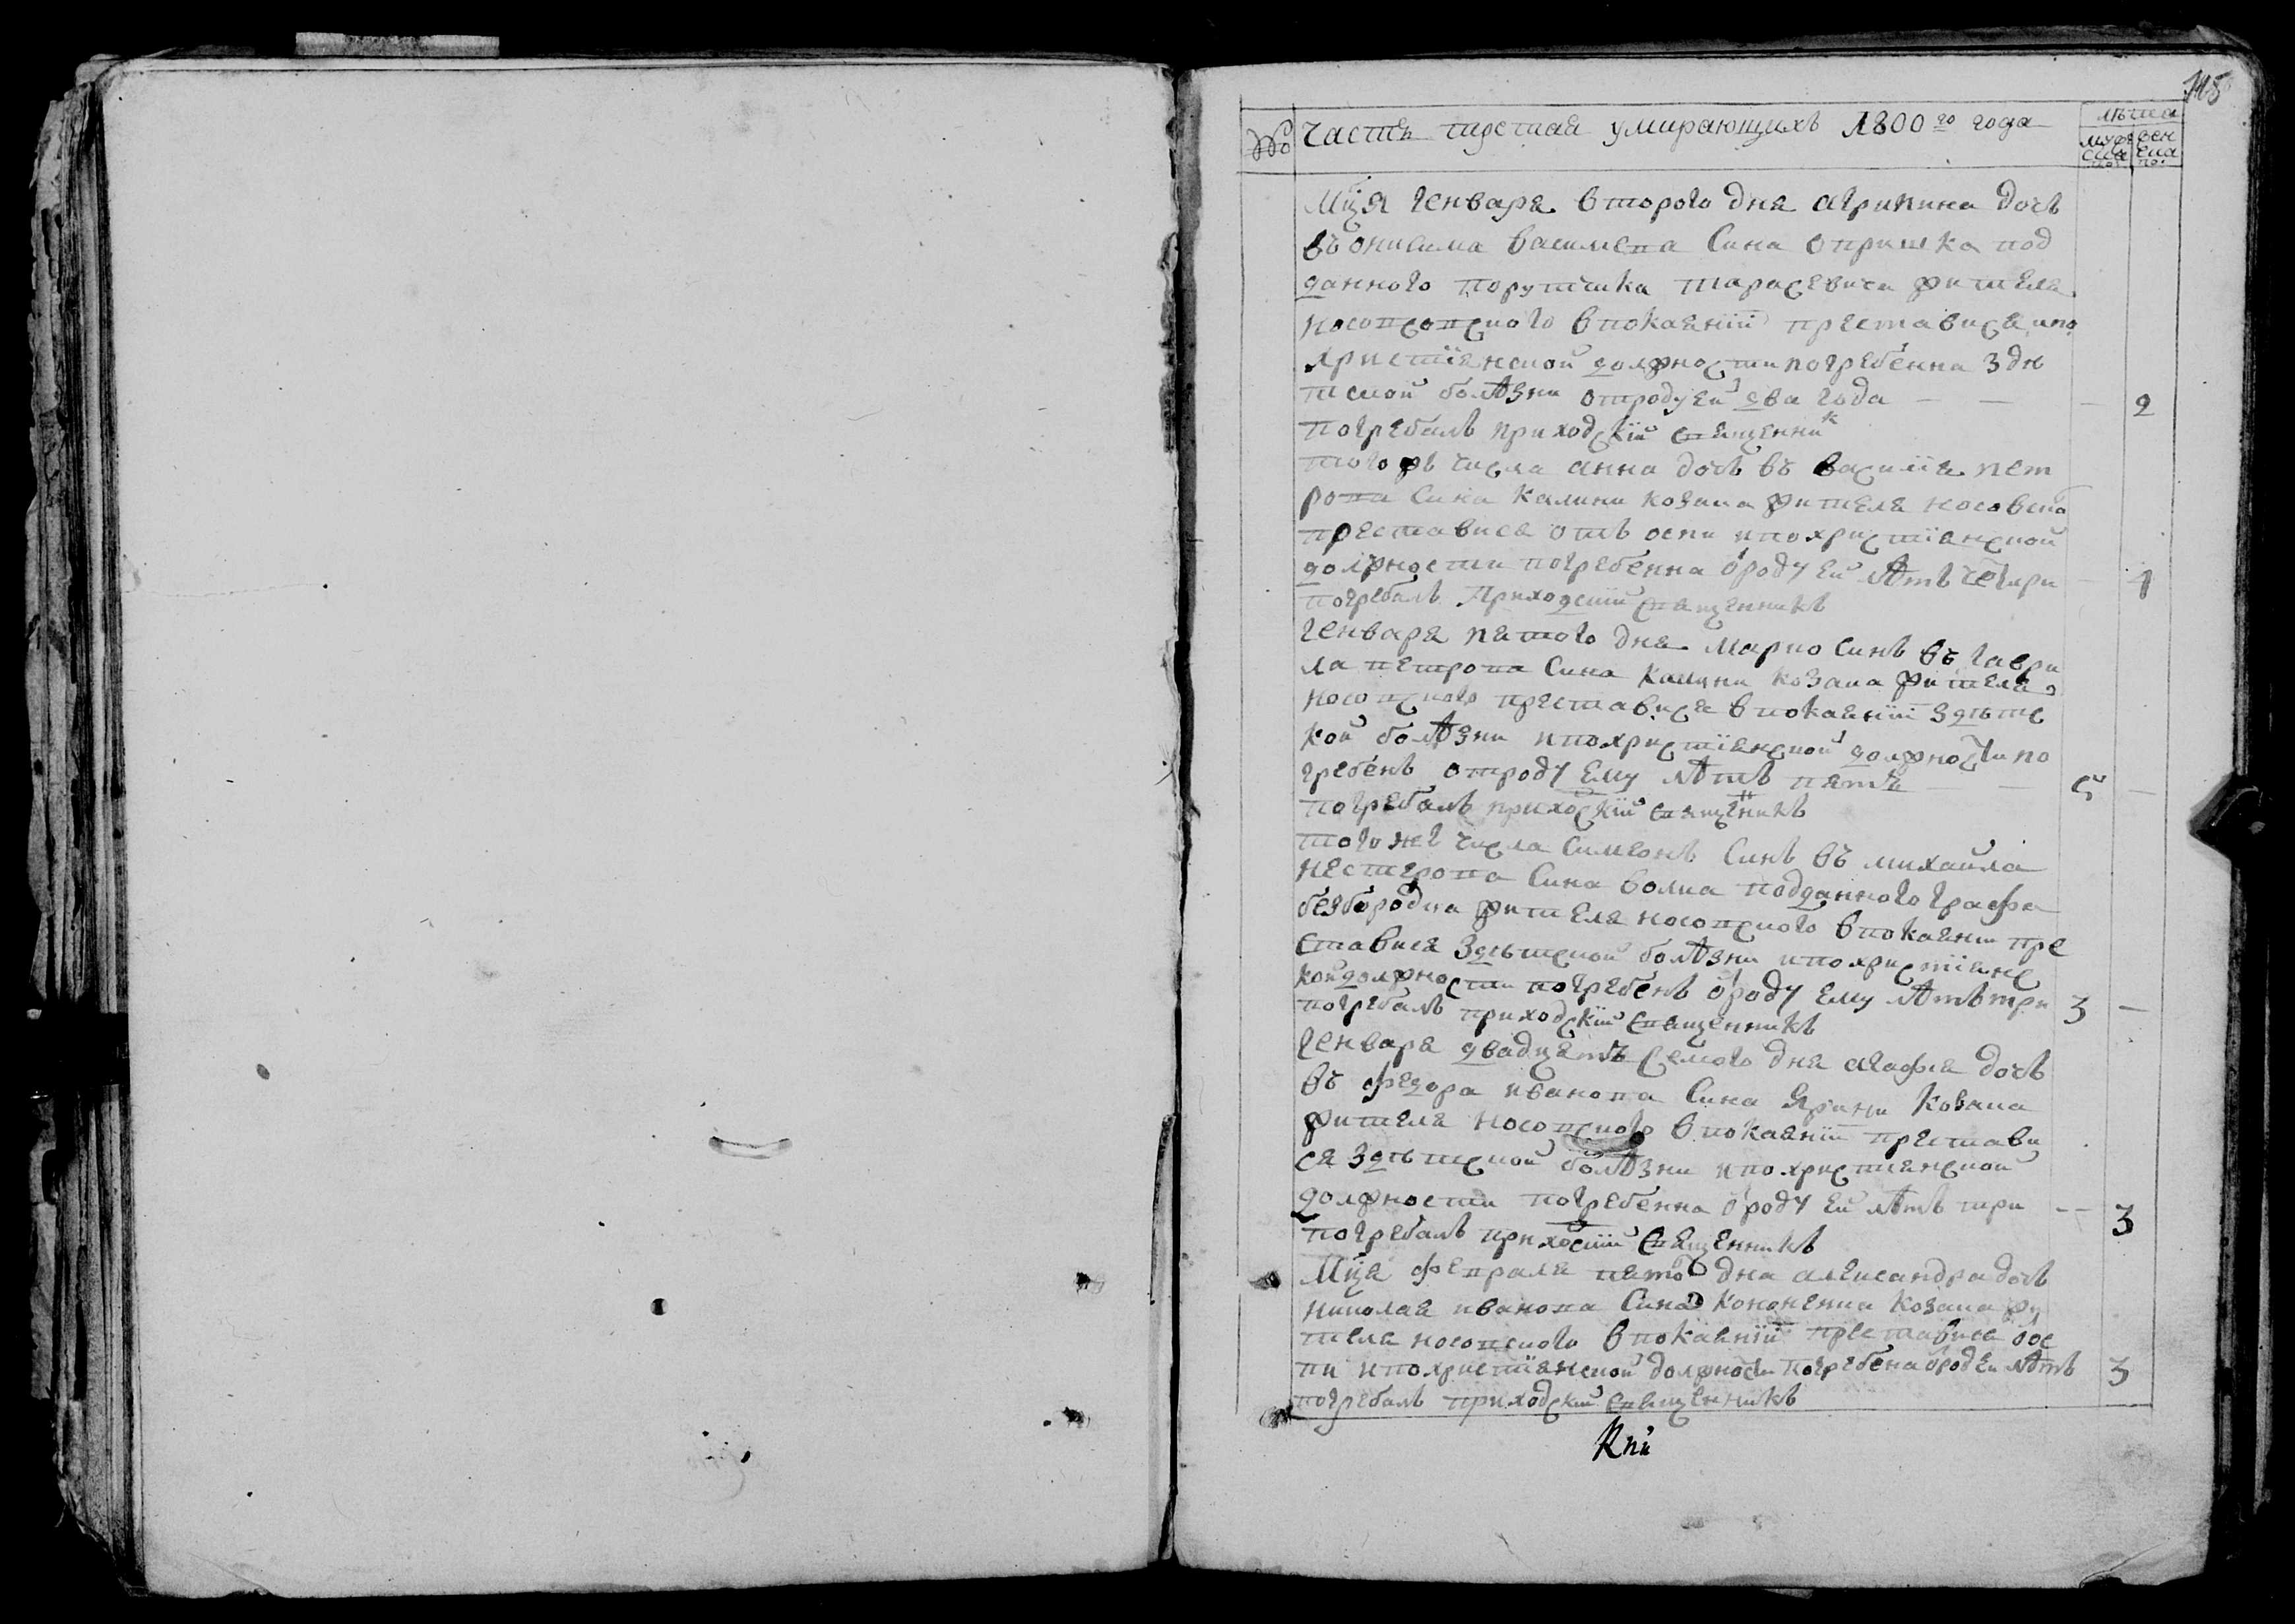 145
№ Часть третая умирающихъ 1800го года
лѣта
мужеска по: женска по:
Мця генваря второго дня агрипина дочъ
въ онисима василева сина опришка под
данного порутчика тарасевича жителя
носовского впокаянїи преставися ипо
християнской должности погребенна здѣ
тской болѣзни отроду ей два года — — — 2
погребалъ приходскїй священник
того жъ числа анна дочъ въ василїя пет
рова сина калини козака жителя носовско
преставися отъ оспи ипохристїянской
должности погребенна ороду ей лѣтъ четири — 4
погребалъ Приходскїй священникъ
генваря пятого дня марко синъ въ гаври
ла петрова сина калини козака жителя
носовского преставися впокаянїи здѣтс
кой болѣзни ипохристїянской должности по
гребенъ отроду ему лѣтъ пять — — 5 —
погребалъ приходскїй священникъ
того жъ числа симеонъ синъ въ михайла
нестерова сина волка подданного графа
безбородка жителя носовского впокаянїи пре
ставися здѣтской болѣзни ипохристїянс
кой должности погребенъ ороду ему лѣтъ три 3 —
погребалъ приходскїй священникъ
генваря двадцять семого дня агафия дочъ
въ федора иванова сина ярини козака
жителя носовского впокаянїи престави
ся здѣтской болѣзни ипохристиянской
должности погребенна ороду ей лѣтъ три — — 3
погребалъ приходскїй священникъ
Мця февраля пято дня александра дочъ
николая иванова сина кононенка козака жи
теля носовского впокаянїи преставися оос
пи ипохристїянской должности погребена ород ей лѣтъ 3
погребалъ приходский священникъ